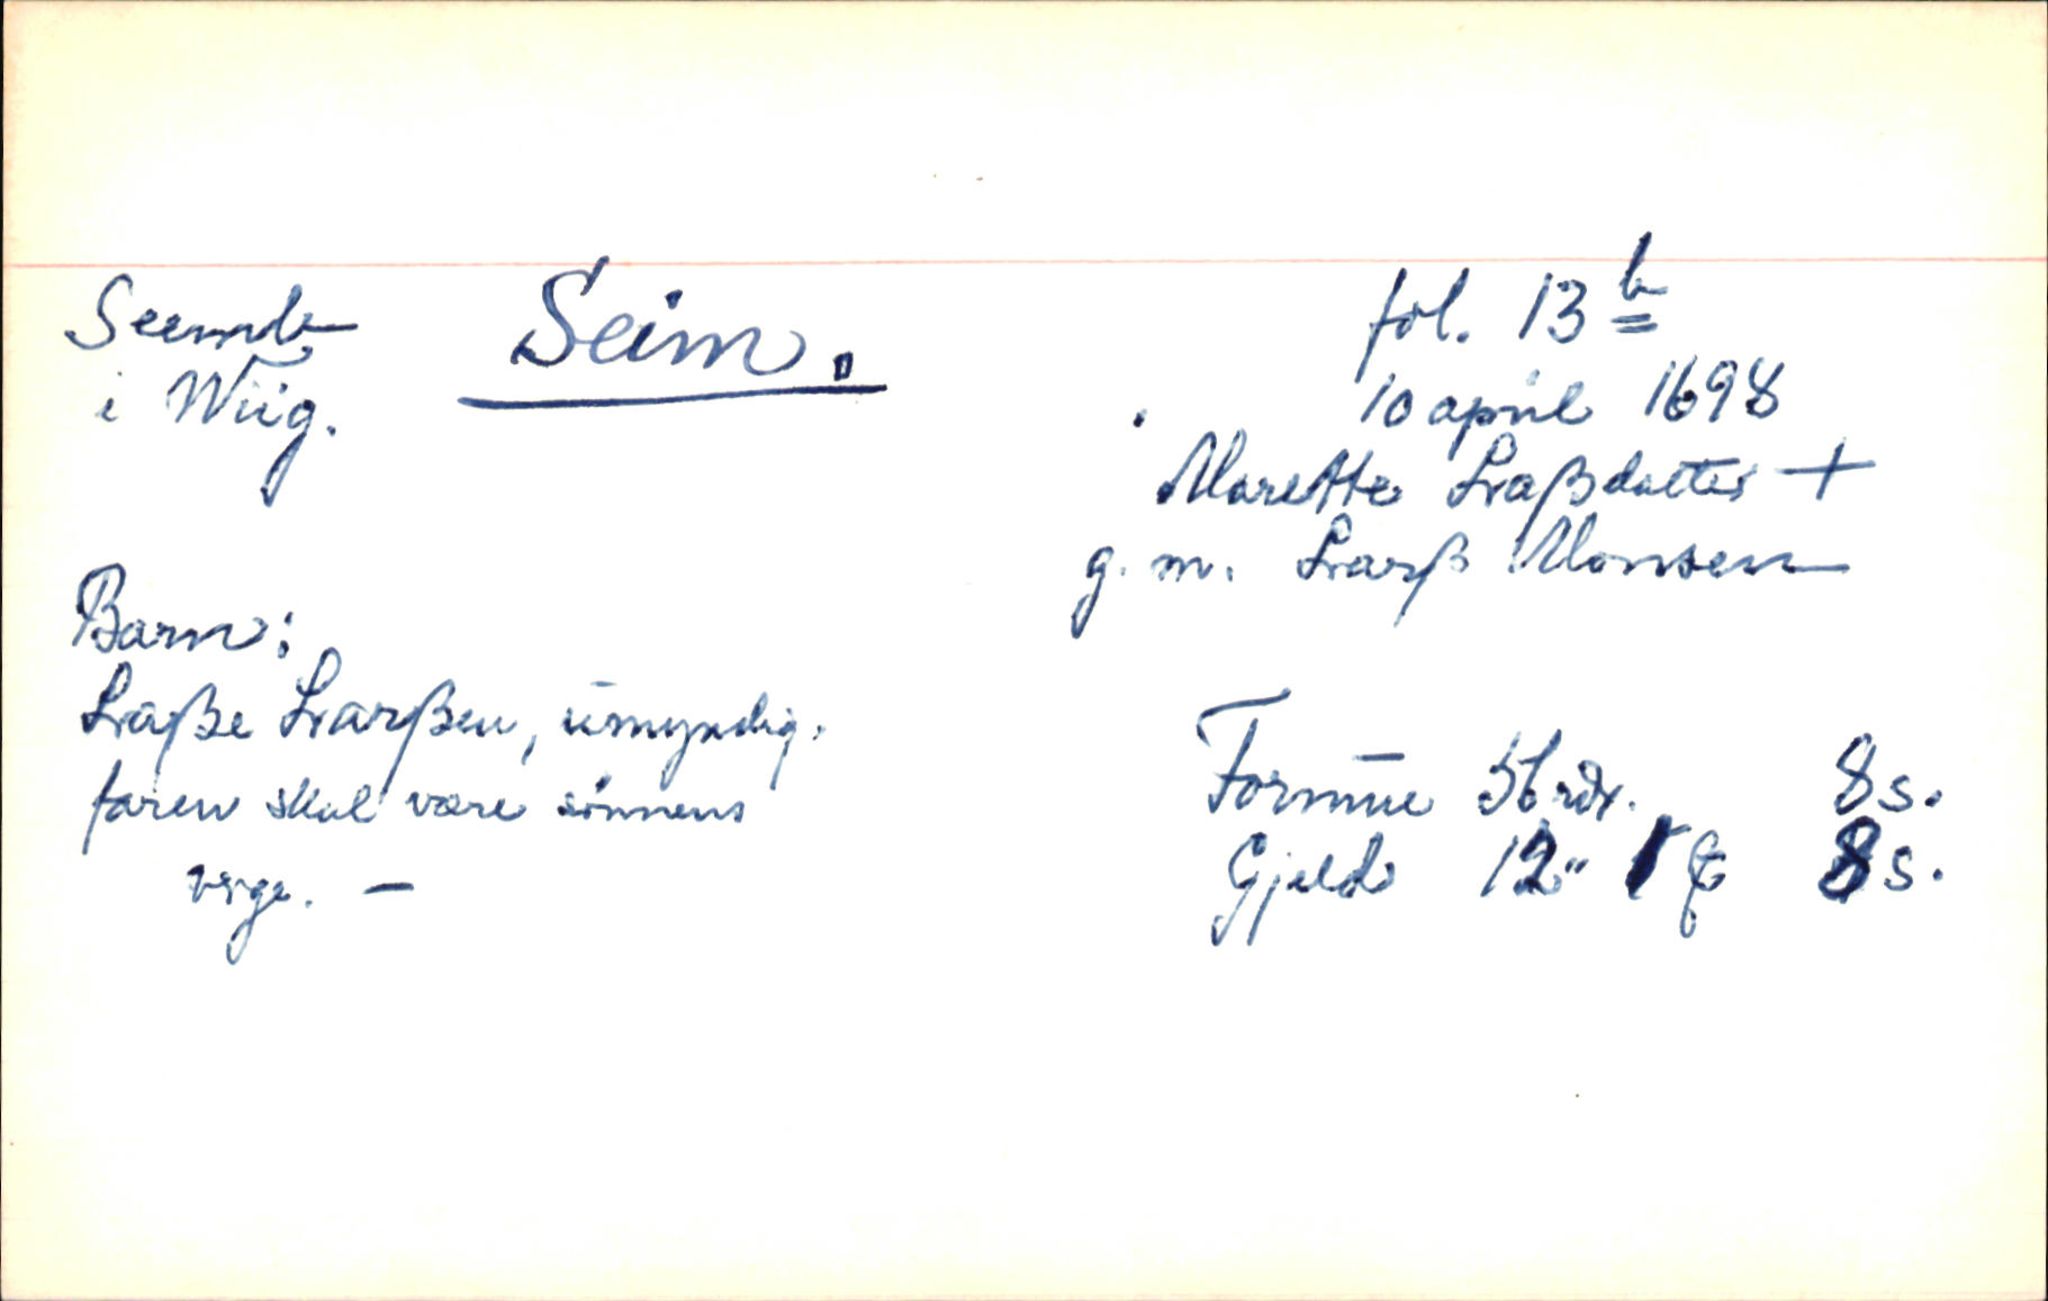 Seemb
i Wiig.
Seim.
fol. 13 b
10 april 1698
Marette Laßdatter +
g. m. Larß Monsen
Barn:
Laße Larßen, umyndig.
faren skal være sønnens
verge. —
Formue 56 rdr. 8 s.
Gjeld 12 " 1 8 s.